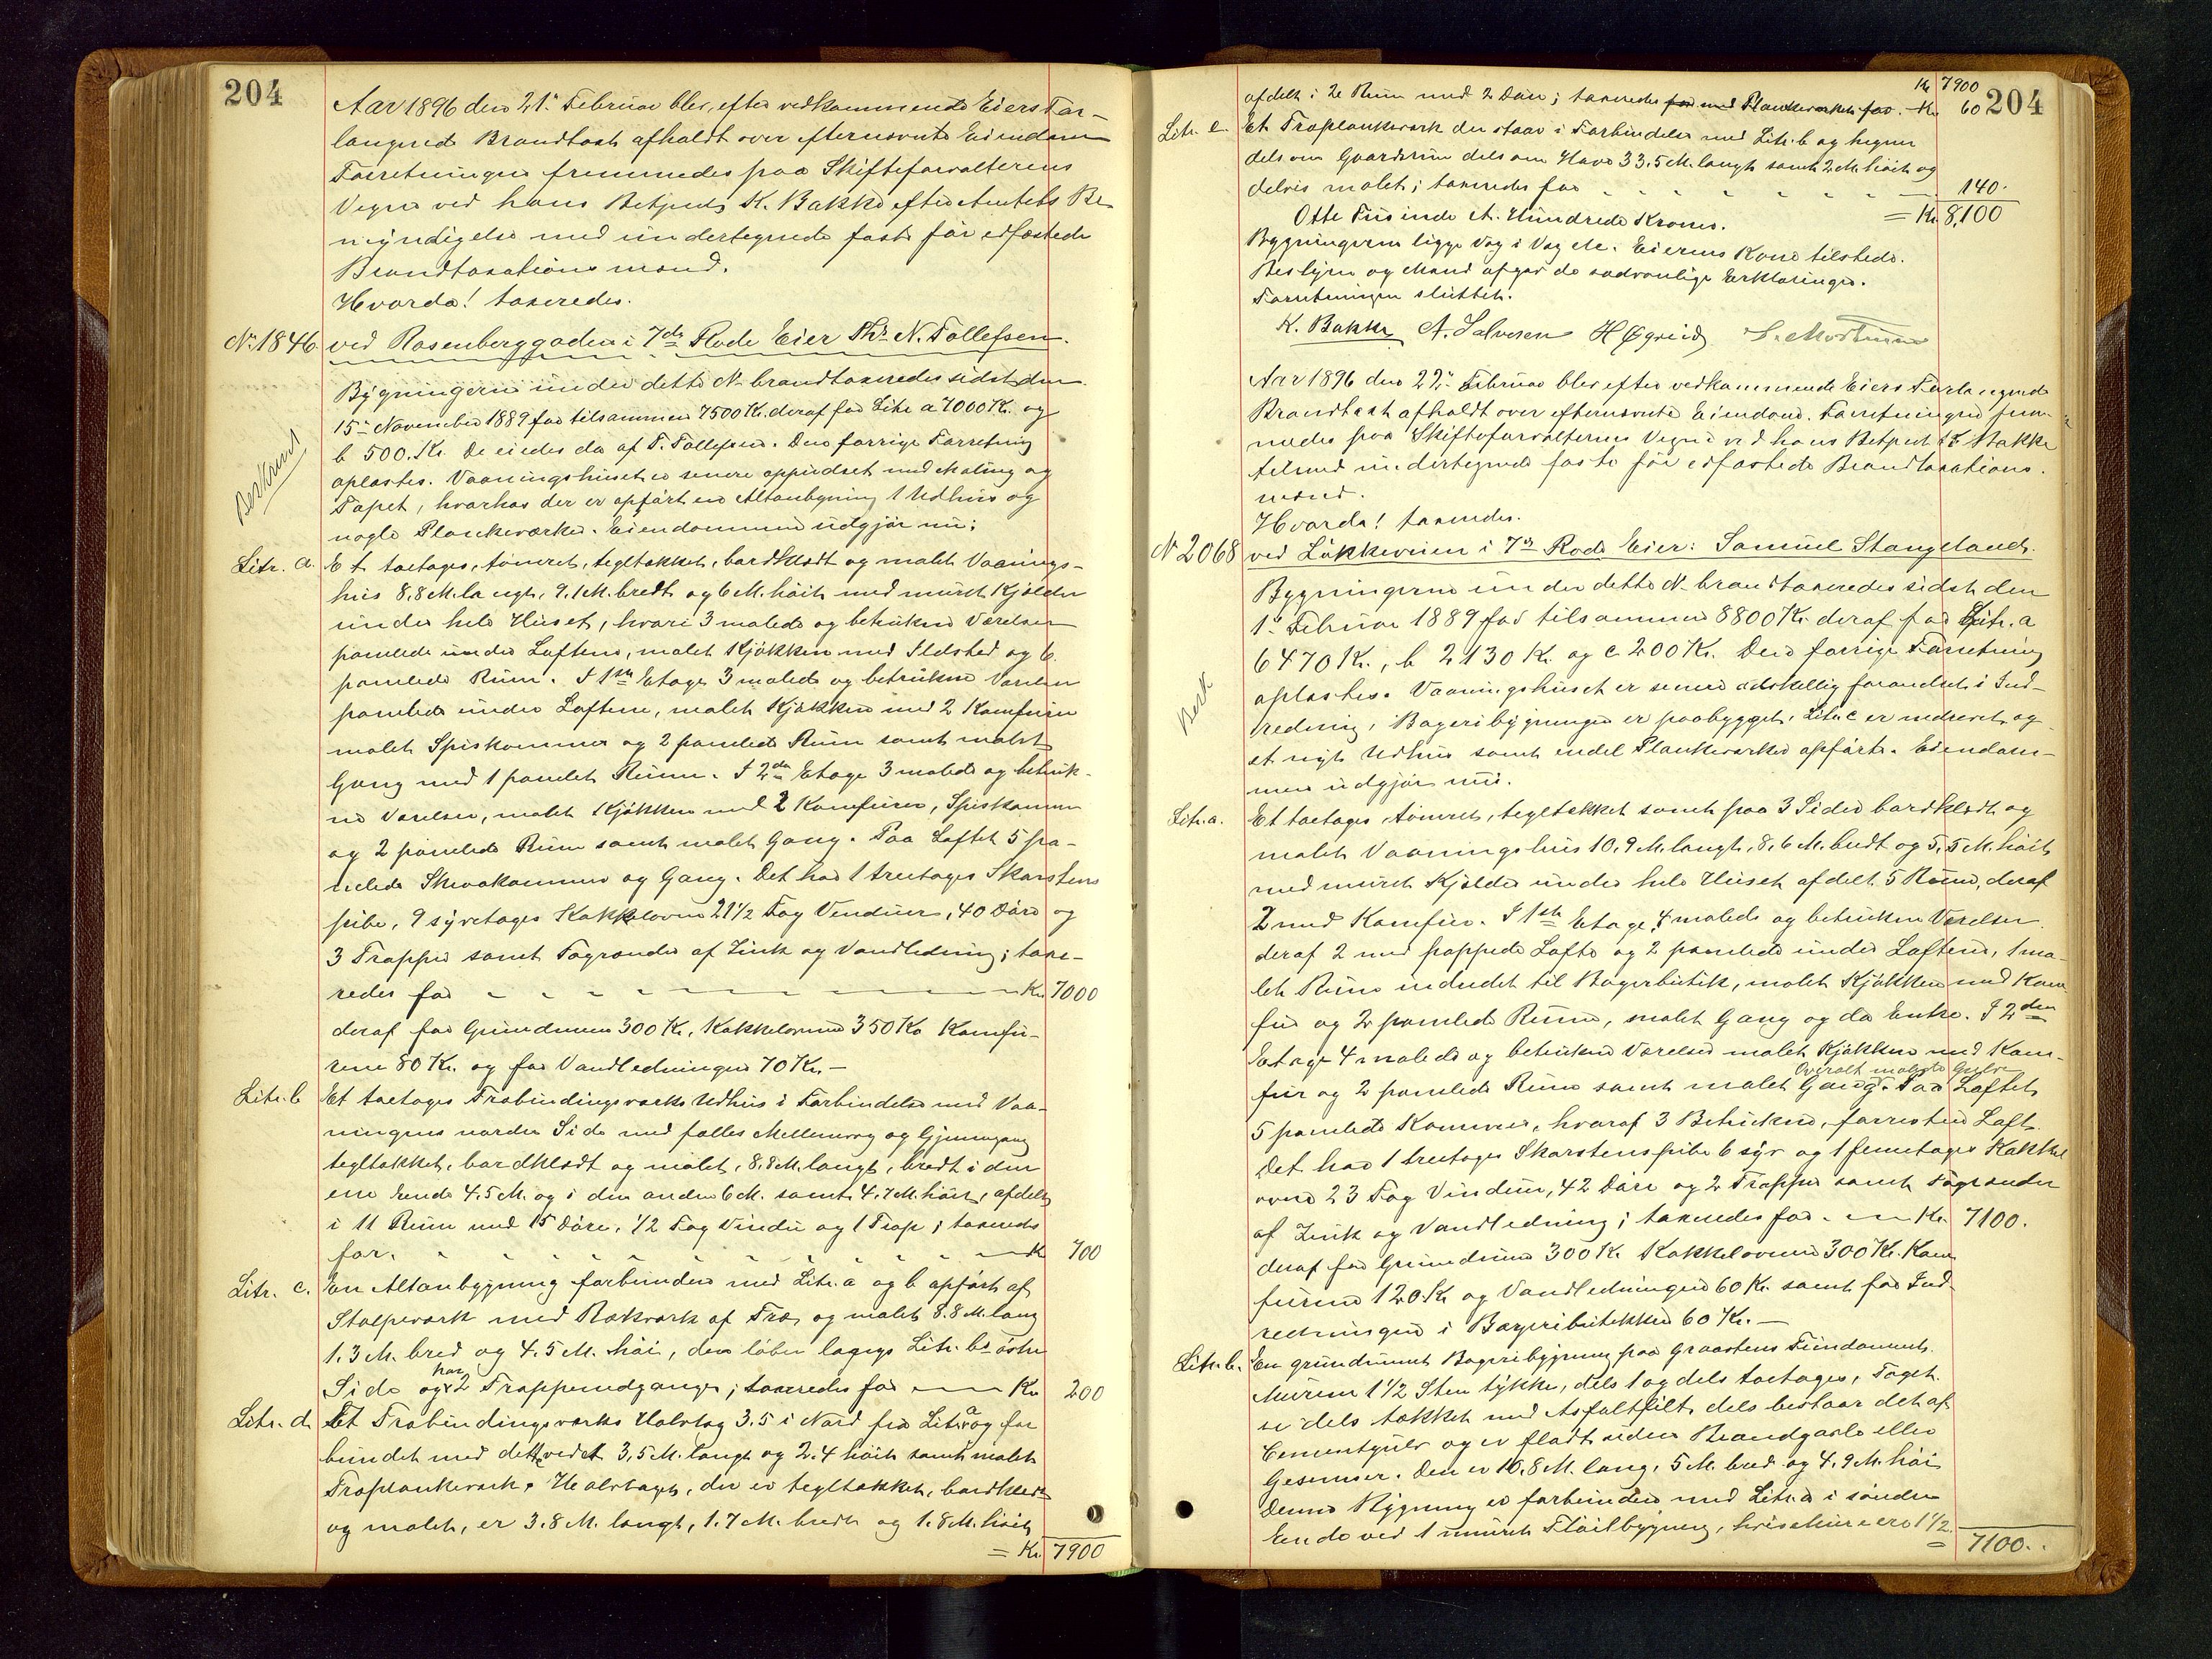 204
Aar 1896 den 21de Februar blev, efter vedkommende Eiers For-
langende Brandtaxt afholdt over efternævnte Eiendom
Forretningen fremmedes paa Skifteforvalterens
Vegne ved hans Betjent K. Bakke efter Amtets Be-
myndigelse med undertegnede faste før edfæstede
Brandtaxationsmænd.
Hvorda! taxeredes.
No 1846. ved Rosenberggaden i 7de Rode Eier Thr. N. Tollefsen.
Bygningerne under dette No brandtaxeredes sidst den
15de November 1889 for tilsammen 7500 Kr. deraf for Litr a 7000 Kr. og
b 500. Kr. De eiedes da af T. Tollefsen. Den forrige Forretning
Beskrevet
oplæstes. Vaaningshuset er senere oppudset med Maling og
Tapet, hvorhos der er opført en Altanbygning 1 Udhus og
nogle Plankeværker. Eiendommen udgjør nu:
Litr. a. Et toetages, tømret, tegltækket, bordklædt og malet Vaanings-
hus 8,8 M. langt, 9,1 M. bredt og 6 M. høit med muret Kjælder
under hele Huset, hvori 3 malede og betrukne Værelser
panelede under Loftene, malet Kjøkken med Ildsted og 6
panelede Rum. I 1ste Etage 3 malede og betrukne Værelser
panelede under Loftene, malet Kjøkken med 2 Komfurer
malet Spiskammer og 2 panelede Rum samt malet
Gang med 1 panelet Rum. I 2den Etage 3 malede og betruk-
ne Værelser, malet Kjøkken med 2 Komfurer, Spiskammer
og 2 panelede Rum samt malet Gang. Paa Loftet 5 pa-
nelede Skraakammer og Gang. Det har 1 treetages Skorstens
pibe, 9 syvetages Kakkelovne 21 1/2 Fag Vinduer, 40 Døre og
3 Trapper samt Tagrender af Zink og Vandledning; taxe-
redes for - - - - Kr. 7000
deraf for Grundmuren 300 Kr, Kakkelovnene 350 Kr Komfu-
rene 80 Kr. og for Vandledningen 70 Kr. —
Litr. b Et toetages Træbindingsværks Udhus i Forbindelse med Vaa-
ningens nordre Side med fælles Mellemvæg og Gjennemgang
tegltækket, bordklædt og malet, 8,8 M. langt, bredt i den
ene Ende 4.5 M. og i den anden 6 M. samt 4,7 M. høit, afdelt
i 11 Rum med 15 Døre, 1/2 Fag Vindu og 1 Trap; taxeredes
for. - - - - K 700
Litr. c. En Altanbygning forbunden med Litr. a og b opført af
Stolpeværk med Rækværk af Træ og malet 8.8 M. lang
1.3 M. bred og 4.5 M. høi, den løber langs Litr. bs østre
Side og har 2 Trappenedgange; taxeredes for — Kr 200
Litr. d. Et Træbindingsværks Halvtag 3.5 i Nord fra Litr. a og for
bundet med dette ved et 3,5 M. langt og 2.4 høit samt malet
Træplankeværk. Halvtaget, der er tegltækket, bordklædt
og malet, er 3.8 M. langt, 1.7 M. bredt og 1.8 M. høit
= Kr. 7900
Kr 7900
204
afdelt i 2e Rum med 2 Døre; taxeredes for med Plankeværket for. Kr. 60
Litr. e. Et Træplankeværk der staar i Forbindelse med Litr. b og hegner
dels om Gaardsrum dels om Have 33.5 M. langt samt 2 M. høit og
delvis malet; taxeredes for - - - 140.
Otte Tusinde et Hundrede Kroner. = Kr. 8,100
Bygningerne ligge Væg i Væg etc. Eierens Kone tilstede.
Bestyrer og Mænd afgav de sædvanlige Erklæringer.
Forretningen sluttet.
K. Bakke A. Salvesen H Øgreid S. Mortensen
Aar 1896 den 22de Februar blev efter vedkommende Eiers Forlangende
Brandtaxt afholdt over efternævnte Eiendom. Forretningen frem-
medes paa Skifteforvalterens Vegne ved hans Betjent K Bakke
tilmed undertegnede faste før edfæstede Brandtaxations-
mænd.
Hvorda! taxeredes.
No 2068 ved Løkkeveien i 7de Rode Eier: Samuel Stangeland.
Bygningerne under dette No brandtaxeredes sidst den
1ste Februar 1889 for tilsammen 8800 Kr. deraf for Litr. a
6470 Kr., b 2130 Kr. og c 200 Kr. Den forrige Forretning
Besk
oplæstes. Vaaningshuset er senere adskillig forandret i Ind-
redning, Bageribygningen er paabygget, Litr. c er nedrevet og
et nyt Udhus samt endel Plankeværker opført. Eiendom-
men udgjør nu.
Litr. a. Et toetages tømret, tegltækket samt paa 3 Sider bordklædt og
malet Vaaningshus 10,9 M. langt, 8,6 M. bredt og 5,5 M. høit
med muret Kjælder under hele Huset afdelt 5 Rum, deraf
2 med Komfur. I 1ste Etage, 4 malede og betrukne Værelser
deraf 2 med pappede Lofte og 2 panelede under Loftene, 1 ma-
let Rum indredet til Bagerbutik, malet Kjøkken med Kom-
fur og 2 panelede Rum, malet Gang og do Entre. I 2den
Etage 4 malede og betrukne Værelser malet Kjøkken med Kom-
overalt malede Gulve
fur og 2 panelede Rum samt malet Gang. Paa Loftet
5 panelede Kammer, hvoraf 3 Betrukne, forresten Loft.
Det har 1 treetages Skorstenspibe 6 syv og 1 femetages Kakkel
ovne 23 Fag Vinduer, 42 Døre og 2 Trapper samt Tagrender
af Zink og Vandledning; taxeredes for. — Kr. 7100.
deraf for Grundmuren 300 Kr. Kakkelovnene 300 Kr. Kom-
furene 120 Kr og Vandledningen 60 Kr. samt for Ind-
redningen i Bageributikken 60 Kr. —
Litr. b. En grundmuret Bageribygning paa Graastens Fundament.
Murene 1 1/2 Sten tykke, dels 1 og dels toetages, Taget
er dels tækket med Asfaltfilt, dels bestaar det af
Cementgulv og er fladt uden Brandgavle eller
Gesimser. Den er 10,8 M. lang, 5 M. bred og 4,9 M. høi
Denne Bygning er forbunden med Litr. a i søndre
Ende ved 1 muret Fløibygning, hvis Mure ere 1 1/2
= 7100..